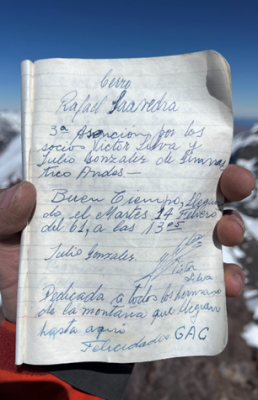 Cerro
Rafael Saavedra
3ª Asencion, por los
socios Victor Silva y
Julio Gonzalez de Gimnas
tres Andes —
Buen Tiempo, llegan
do, el Martes 14 Febrero
del 61, a las 13
Julio Gonzalez.
Victor
Silva
Dedicada a todos los hermanos
de la montaña que llegran
hasta aqui
Felicidades GAC